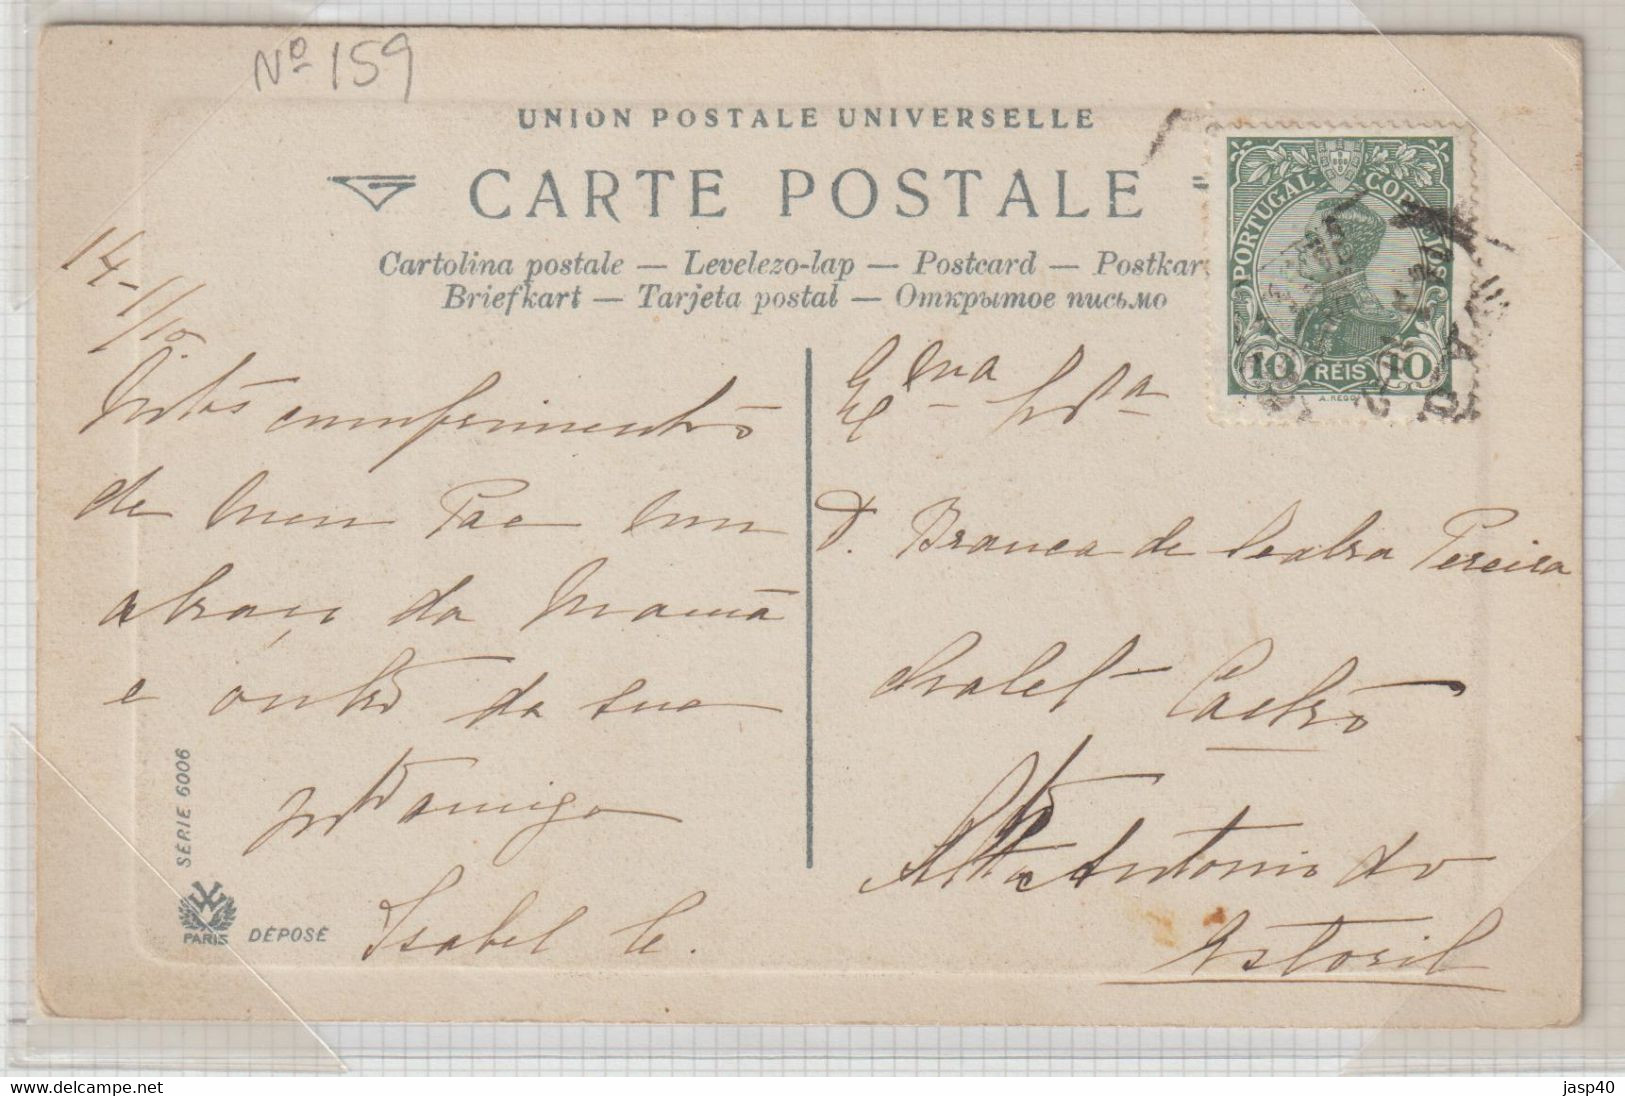 Nº 159
UNION POSTALE UNIVERSELLE
CARTE POSTALE
Cartolina postale — Levelezo-lap — Postcard — Postkar
Briefkart — Tarjeta postal — Открытое письмо
PORTUGAL CORREIOS
10 RÉIS 10
14-1/10
Mtos cumprimentos
de meu Pae um
abraço da Mamã
e outro da sua
amiga
Isabel C.
Exma Sra
D. Branca de Seabra Pereira
Chalet Castro
Alto Antonio do
Estoril
SÉRIE 6006
PARIS
DÉPOSÉ
delcampe.net
jasp40